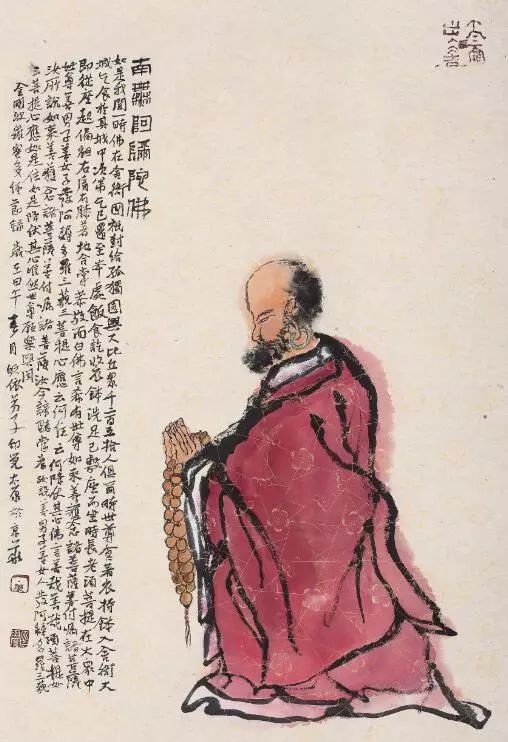 南無阿彌陀佛
如是我聞一時佛在舍衛國祇樹給孤獨園與大比丘眾千二百五拾人俱爾時世尊食著衣持鉢入舍衛大
城乞食於其城中次第乞已還至本處飯食訖收衣鉢洗足已敷座而坐時長老須菩提在大眾中
即從座起偏袒右肩右膝著地合掌恭敬而白佛言希有世尊如來善護念諸菩薩善付囑諸菩薩
世尊善男子善女子發阿耨多羅三藐三菩提心應云何住云何降伏其心佛言善哉善哉須菩提如
汝所說如來善護念諸菩薩善付囑諸菩薩汝今諦聽當為汝說善男子善女人發阿耨多羅三藐
三菩提心應如是住如是降伏其心唯然世尊願樂欲聞
金剛波羅蜜多經節錄 歲在甲午春月皈依弟子印覺